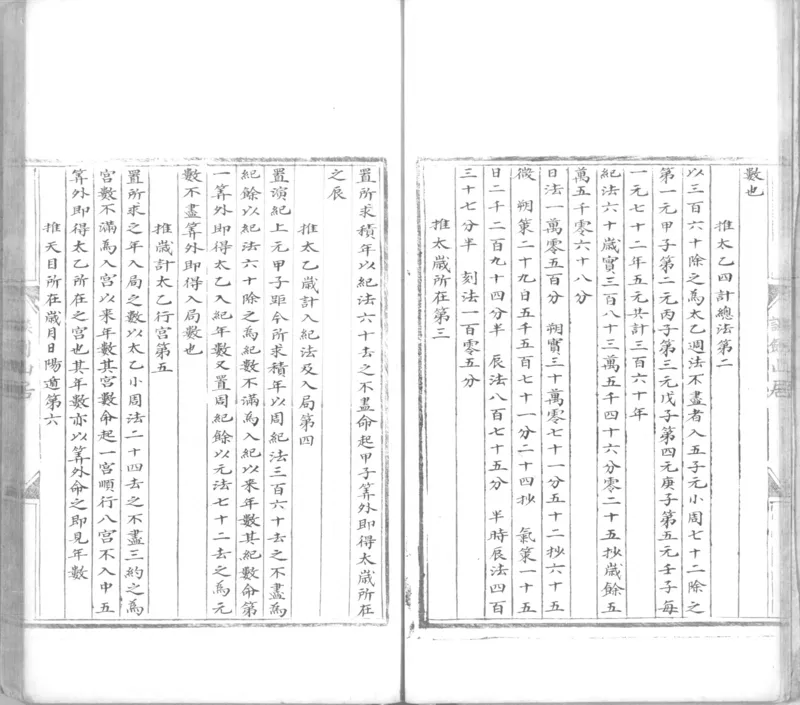 數也
推太乙四計總法第二
以三百六十除之為太乙週法不盡者入五子元小周七十二除之
第一元甲子第二元丙子第三元戊子第四元庚子第五元壬子每
一元七十二年五元共計三百六十年
紀法六十歲實三百八十三萬五千四十六分零二十五抄歲餘五
萬五千零六十八分
日法一萬零五百分　朔實三十萬零七十一分五十二抄六十五
微　朔策二十九日五千五百七十一分二十四抄　氣策一十五
日二千二百九十四分半　辰法八百七十五分　半時辰法四百
三十七分半　刻法一百零五分
推太歲所在第三
置所求積年以紀法六十去之不盡命起甲子筭外即得太歲所在
之辰
推太乙歲計入紀法及入局第四
置演紀上元甲子距今所求積年以周紀法三百六十去之不盡為
紀餘以紀法六十除之為紀數不滿為入紀以來年數其紀數命第
一筭外即得太乙入紀年數又置周紀餘以元法七十二去之為元
數不盡筭外即得入局數也
推歲計太乙行宮第五
置所求之年入局之數以太乙小周法二十四去之不盡三約之為
宮數不滿為入宮以來年數其宮數命起一宮順行八宮不入中五
筭外即得太乙所在之宮也其年數亦以筭外命之即見年數
推天目所在歲月日陽遁第六